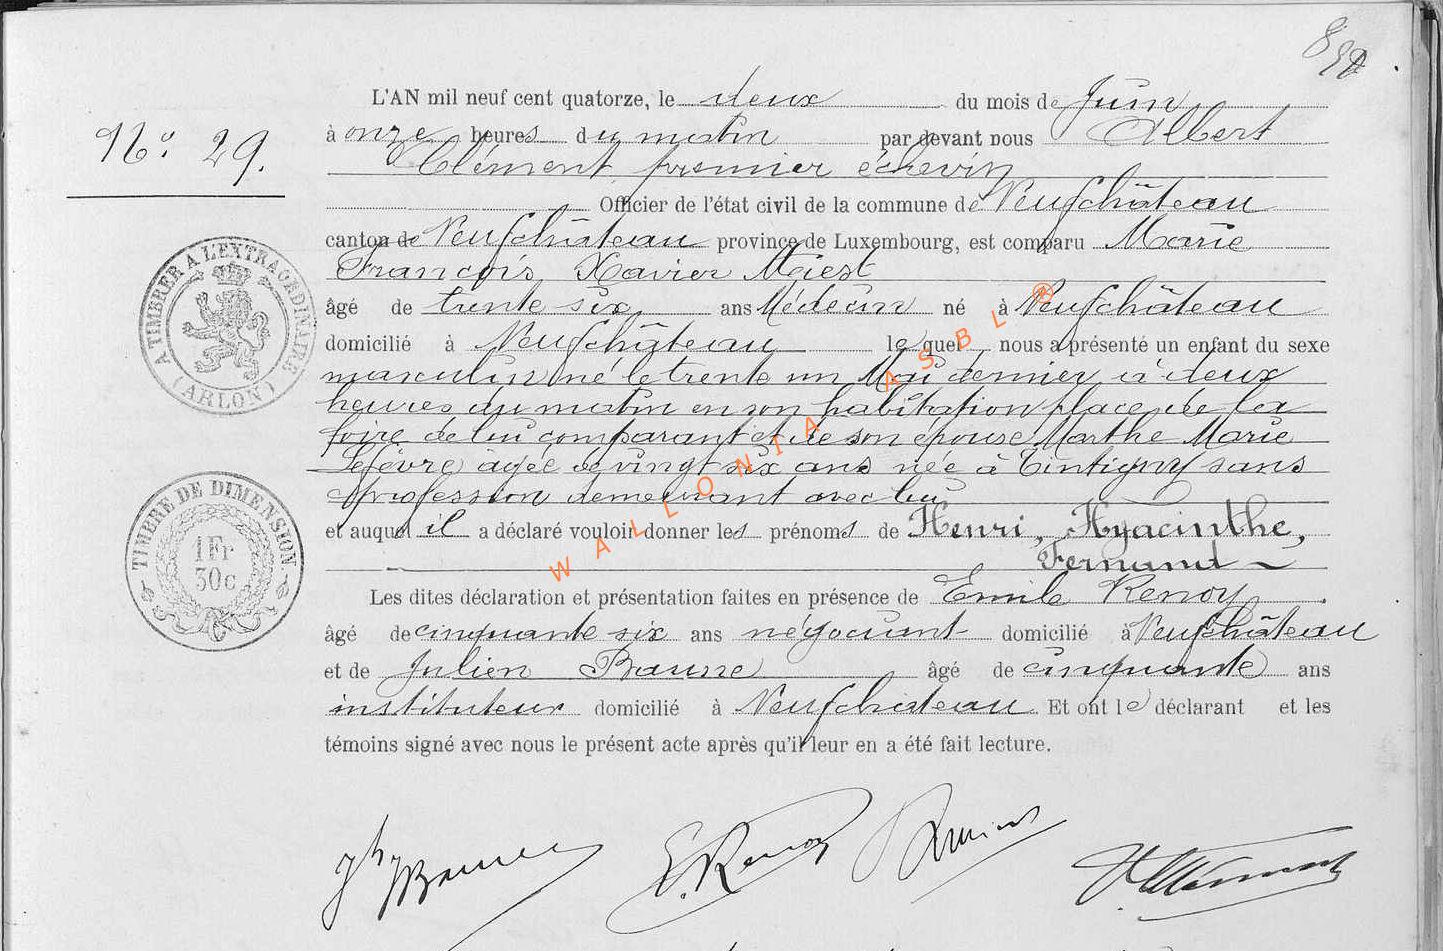 L'AN mil neuf cent quatorze, le deux du mois de Juin
à onze heures du matin par devant nous Albert
Clément premier échevin
Officier de l'état civil de la commune de Neufchâteau
canton de Neufchâteau province de Luxembourg, est comparu Marie
François Xavier
âgé de trente six ans Médecin né à Neufchâteau
domicilié à Neufchâteau lequel nous a présenté un enfant du sexe
masculin né le trente un Mai dernier à deux
heures du matin en son habitation place de la
foire de lui comparant et de son épouse Marthe Marie
Lefèvre âgée de vingt six ans née à Tintigny sans
profession demeurant avec lui
et auquel il a déclaré vouloir donner les prénoms de Henri, Hyacinthe,
Fernand
Les dites déclaration et présentation faites en présence de Emile Renoy
âgé de cinquante six ans négociant domicilié à Neufchâteau
et de Julien âgé de cinquante ans
instituteur domicilié à Neufchateau Et ont le déclarant et les
témoins signé avec nous le présent acte après qu'il leur en a été fait lecture.
E. Renoy
No. 29.
A TIMBRER A L'EXTRAORDINAIRE
(ARLON)
TIMBRE DE DIMENSION
1Fr
30c
WALLONIA ASBL ®